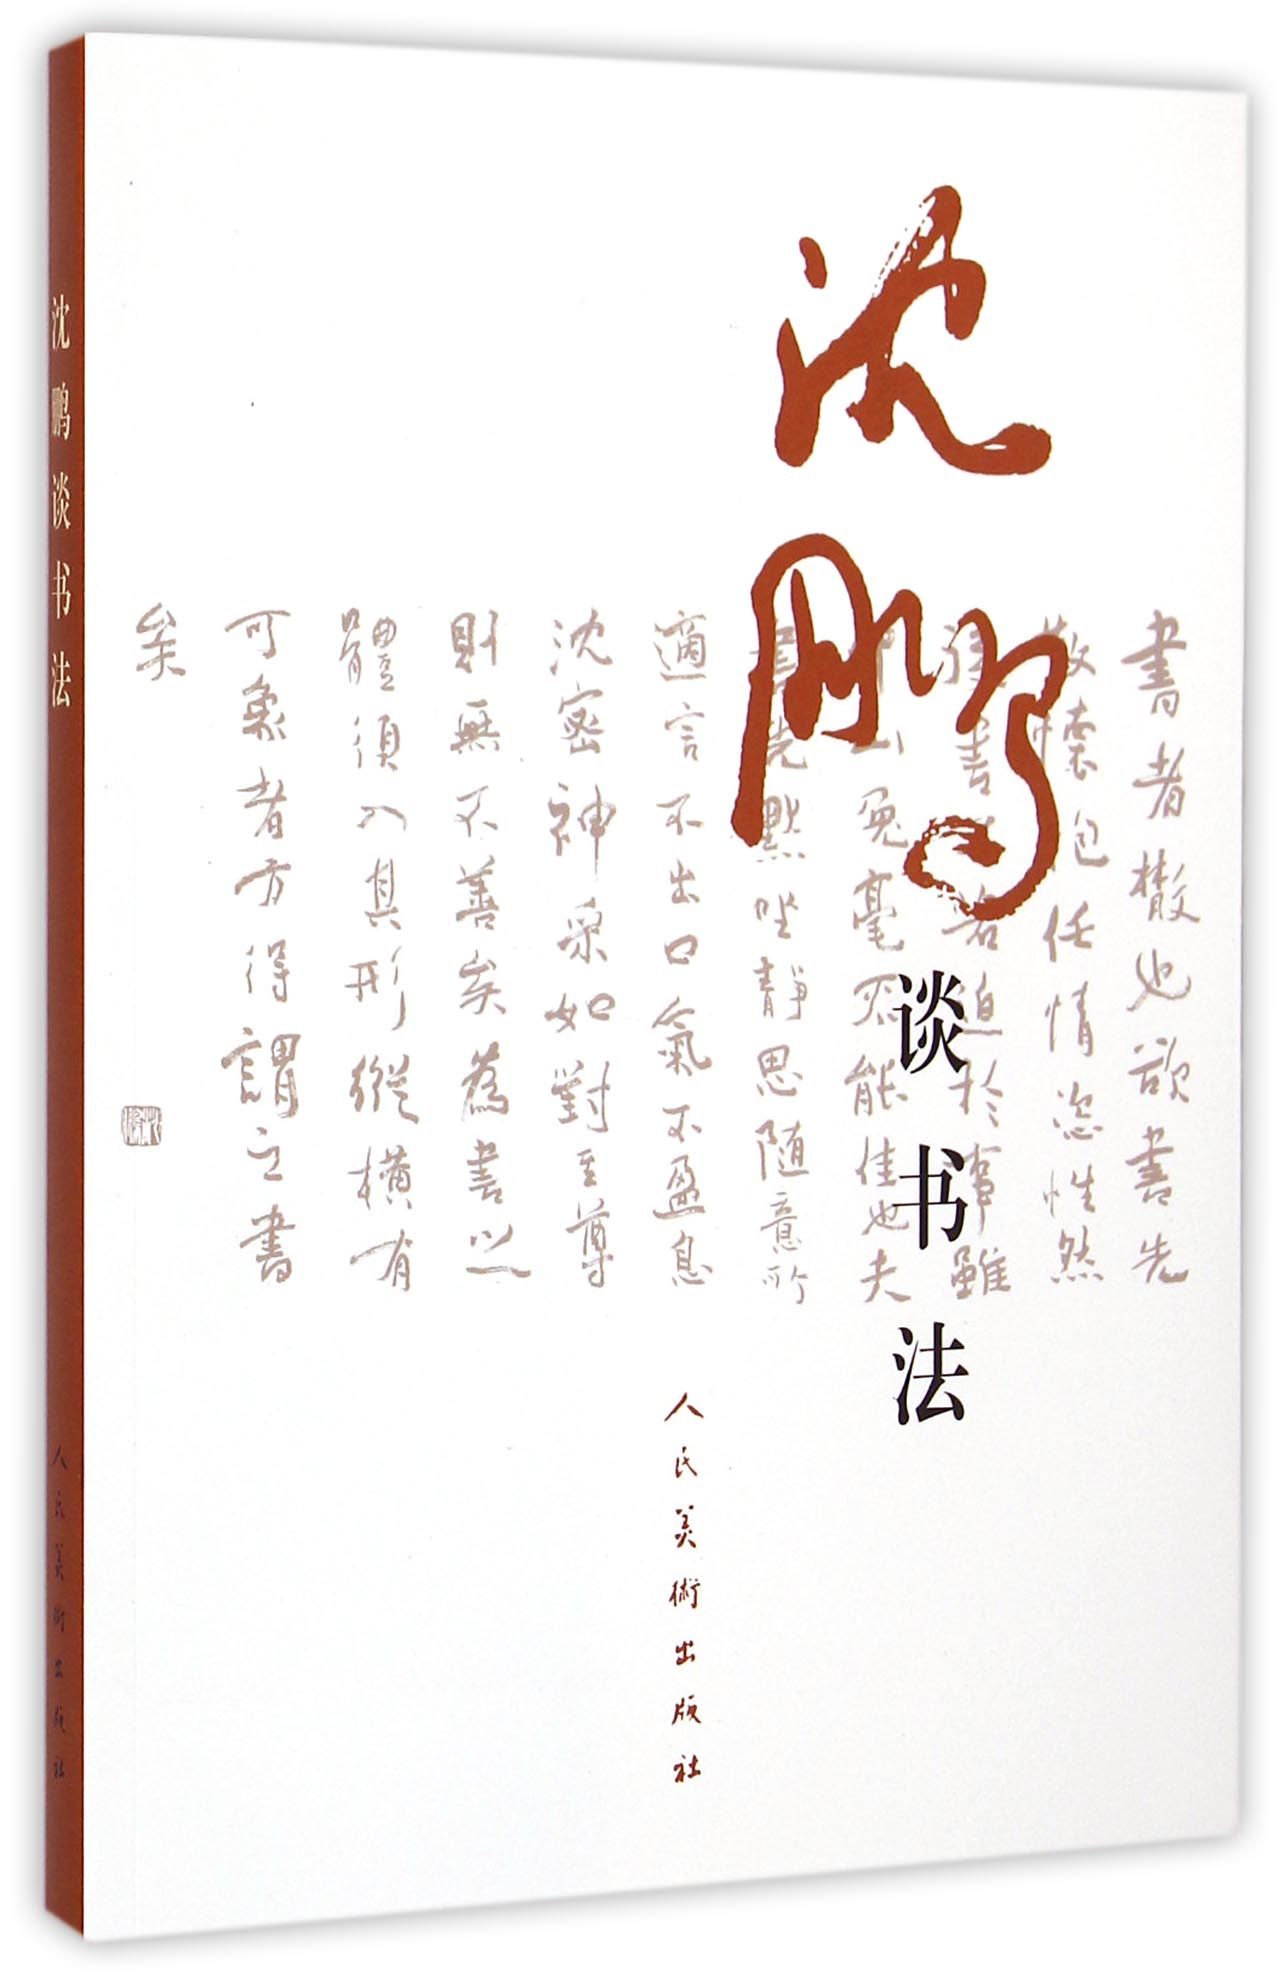 沈鹏
谈书法
書者散也欲書先
散懷抱任情恣性然
後書之若迫於事雖
中山兔毫不能佳也夫
書先默坐靜思隨意所
適言不出口氣不盈息
沈密神采如對至尊
則無不善矣為書之
體須入其形縱橫有
可象者方得謂之書
矣
人民美術出版社
沈鹏谈书法
人民美術出版社